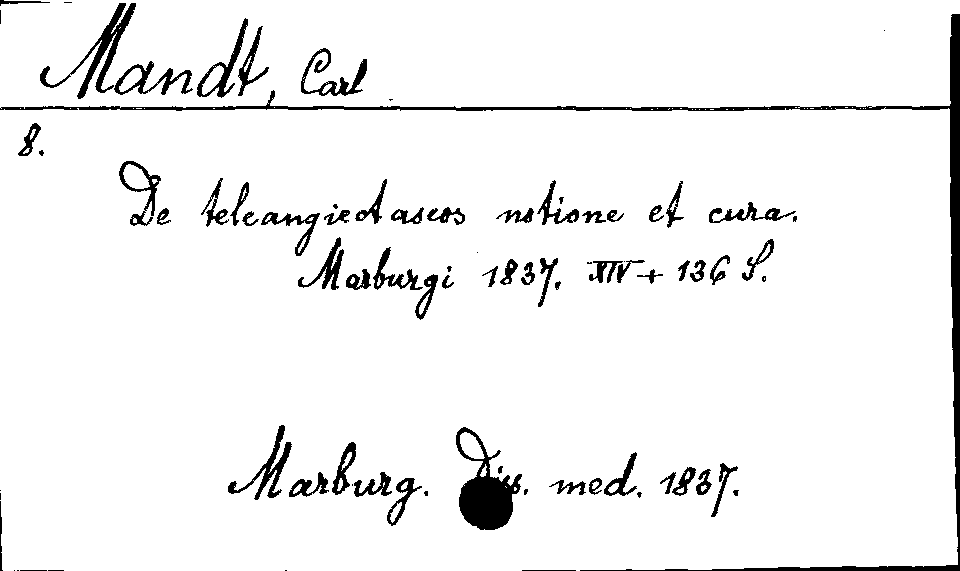 Mandt, Carl
8.
De teleangiectaseos notione et cura.
Marburgi 1837. XIV + 136 S.
Marburg. Diss. med. 1837.